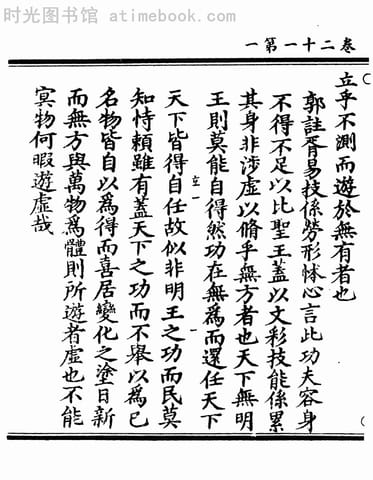 时光图书馆 atimebook.com
卷二十一第一
立乎不測而遊於無有者也
郭註胥易技係勞形怵心言此功夫容身
不得不足以比聖王蓋以文彩技能係累
其身非涉虛以脩乎無方者也天下無明
王則莫能自得然功在無為而還任天下
立一
天下皆得自任故似非明王之功而民莫
知恃賴雖有蓋天下之功而不舉以為已
名物皆自以為得而喜居變化之塗日新
而無方與萬物為體則所遊者虛也不能
㝠物何暇遊虛哉